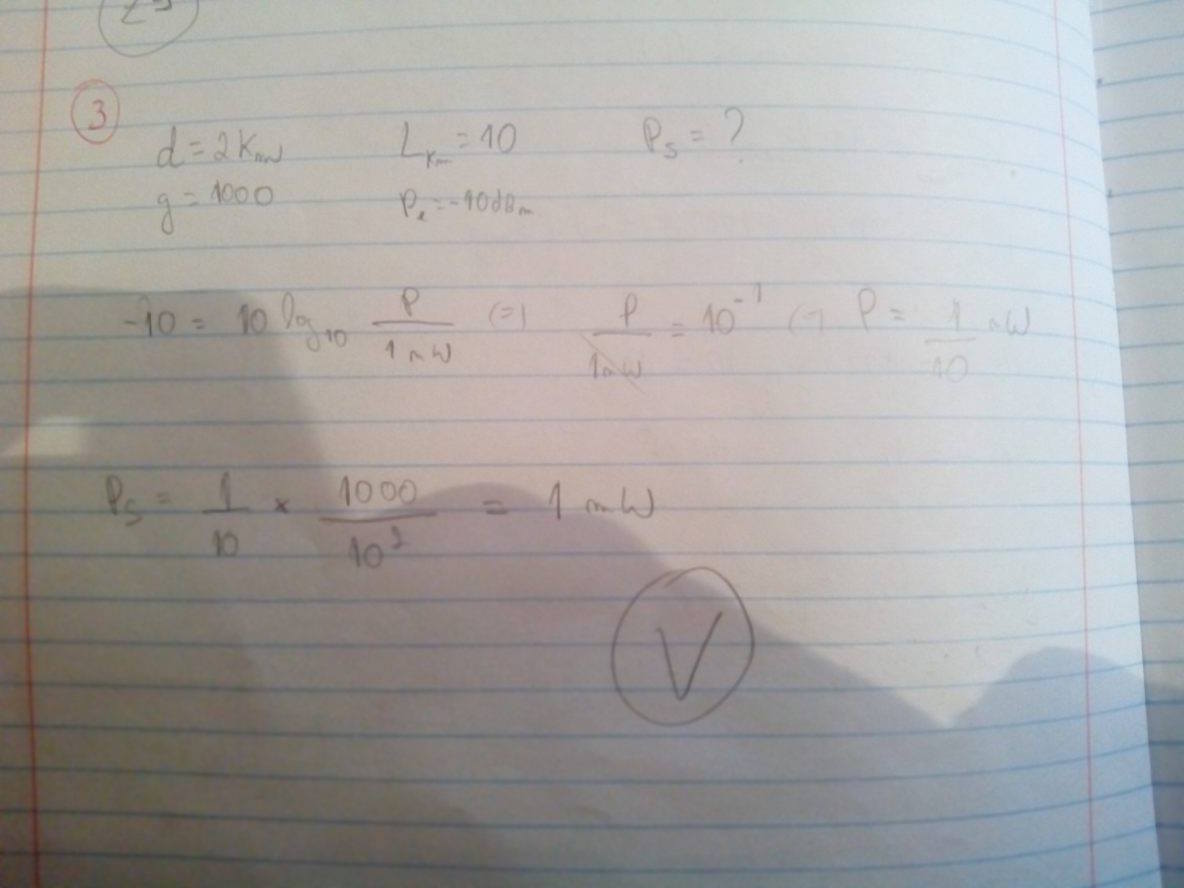 3
d = 2 Km L_Km = 10 P_s = ?
g = 1000 P_e = -10 dBm
-10 = 10 log_10 P/1mW (=) P/1mW = 10^-1 (=) P = 1/10 mW
P_s = 1/10 × 1000/10^2 = 1 mW
V